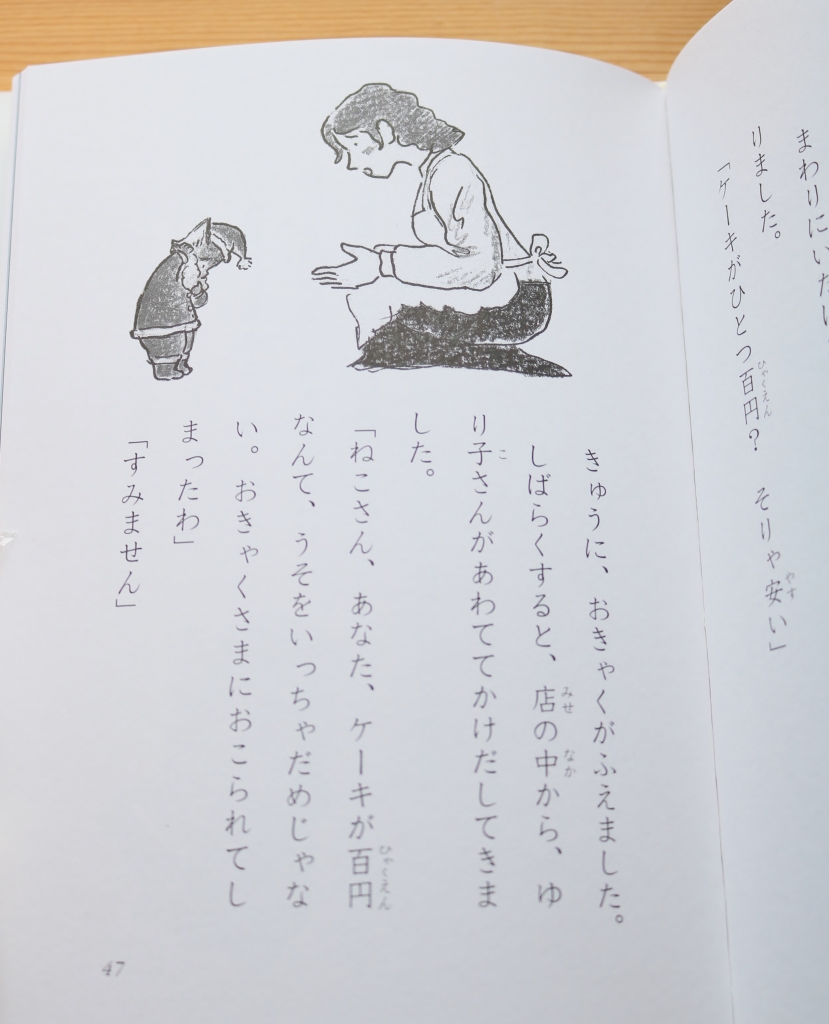 まわりにいた
りました。
「ケーキがひとつ百円？　そりゃ安い」
きゅうに、おきゃくがふえました。
しばらくすると、店の中から、ゆ
り子さんがあわててかけだしてきま
した。
「ねこさん、あなた、ケーキが百円
なんて、うそをいっちゃだめじゃな
い。おきゃくさまにおこられてし
まったわ」
「すみません」
47